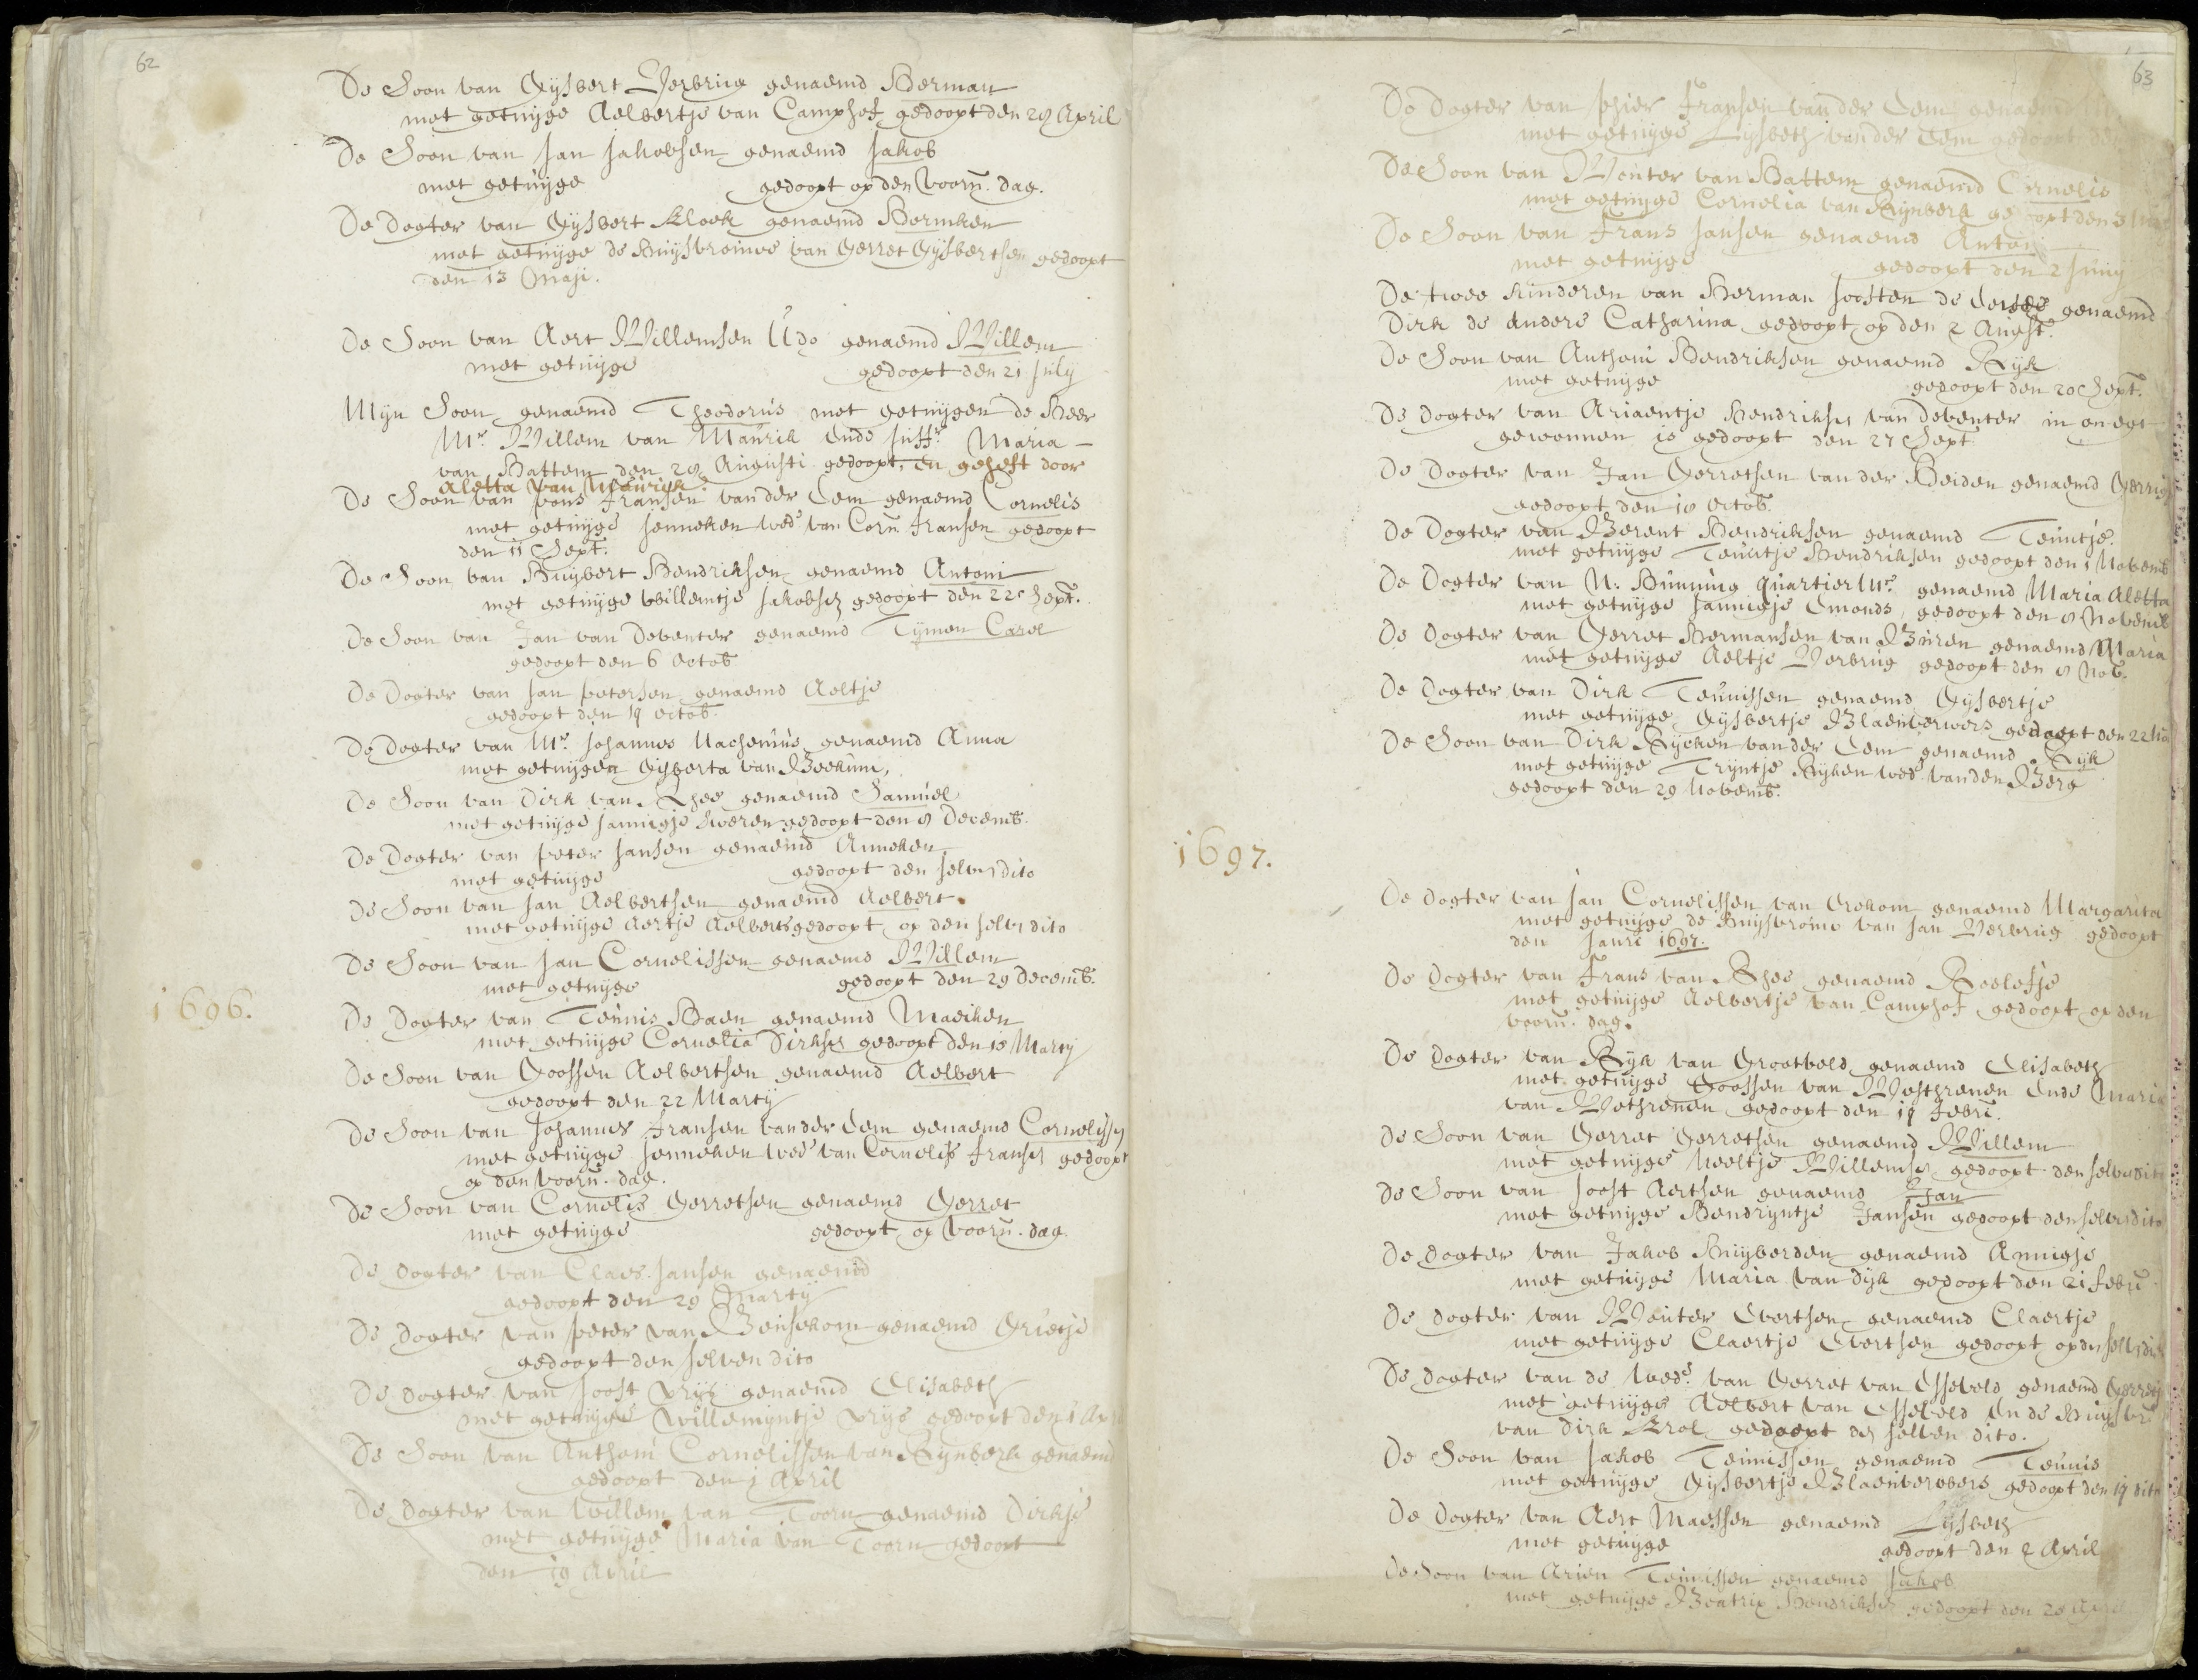 62
De Soon van Gysbert Verbrug genaemd Herman
met getuijge Aelbertje van Camphof gedoopt den 28 April
De Soon van Jan Jakobsen genaemd Jakob
met getuijge gedoopt op den voorn. dag.
De Dogter van Gysbert Kloek genaemd Hermken
met getuijge de Huijsvrouwe van Gerret Gysbertsen gedoopt
den 13 Maji.
De Soon van Aert Willemsen Udo genaemd Willem
met getuijge gedoopt den 21 July
Mijn Soon genaemd Theodorus met getuijgen de Heer
Mr. Willem van Maurik ende Juffr. Maria
van Battem den 28 Augusti gedoopt, en geheft door
Aletta van Mauryk.
De Soon van Fransen vander Eem genaemd Cornelis
met getuijge Jenneken wede van Corn. Fransen gedoopt
den 11 Sept.
De Soon van Huijbert Hendriksen genaemd Antoni
met getuijge Willemtje Jakobsen gedoopt den 22 Sept.
De Soon van Jan van Deventer genaemd Tijmen Carel
gedoopt den 6 Octob.
De Dogter van Jan Petersen genaemd Aeltje
gedoopt den 19 Octob.
De Dogter van Mr. Johannes Nachenius genaemd Anna
met getuijgen Gisberta van Beekum,
De Soon van Dirk van Rhee genaemd Samuel
met getuijge Jannigje gedoopt den 8 Decemb.
De Dogter van Peter Jansen genaemd Anneken
met getuijge gedoopt den selven dito
De Soon van Jan Aelbertsen genaemd Aelbert.
met getuijge Aertje Aelberts gedoopt op den selven dito
De Soon van Jan Cornelissen genaemd Willem
met getuijge gedoopt den 29 Decemb.
1696.
De Dogter van Teunis Haen genaemd Maeiken
met getuijge Cornelia Dirksen gedoopt den 18 Martij
De Soon van Goossen Aelbertsen genaemd Aelbert
gedoopt den 22 Martij
De Soon van Johannes Fransen vander Eem genaemd Cornelissen
met getuijge Jenneken wede van Cornelis Fransen gedoopt
op den voorn. dag.
De Soon van Cornelis Gerretsen genaemd Gerret
met getuijge gedoopt op voorn. dag.
De Dogter van Claes Jansen genaemd
gedoopt den 29 Martij
De Dogter van Peter van Beusekom genaemd Grietje
gedoopt den selven dito
De Dogter van Joost Vrijs genaemd Elisabeth
met getuijge Willemijntje Vrijs gedoopt den 1 Apr
De Soon van Anthoni Cornelissen van Rijnberk genaemd
gedoopt den 1 April
De Dogter van Willem van Toorn genaemd Dirkje
met getuijge Maria van Toorn gedoopt
den 19 April
63
De Dogter van Fransen vander Eem genaemd
met getuijge Lijsbeth vander Eem gedoopt den
De Soon van Wouter van Battem genaemd Cornelis
met getuijge Cornelia van Rijnberk gedoopt den 3
De Soon van Frans Jansen genaemd Anton
met getuijge gedoopt den 2 Junij
De twee kinderen van Herman Joosten de eerste genaemd
Dirk de andere Catharina gedoopt op den 2 Augst.
De Soon van Anthoni Hendriksen genaemd Rijk
met getuijge gedoopt den 20 Sept.
De Dogter van Ariaentje Hendriksen van Deventer in onegt
gewonnen is gedoopt den 27 Sept
De Dogter van Jan Gerretsen vander Heiden genaemd
gedoopt den 18 Octob.
De Dogter van Berent Hendriksen genaemd Teuntje
met getuijge Teuntje Hendriksen gedoopt den 1 Novemb
De Dogter van N. Bunning quartierMr. genaemd Maria Aletta
met getuijge Jannigje Emonds, gedoopt den 8 Novemb
De Dogter van Gerret Hermansen van Buren genaemd Maria
met getuijge Aeltje Verbrug gedoopt den 8 Nov.
De Dogter van Dirk Teunissen genaemd Gijsbertje
met getuijge Gijsbertje Blaeuwverwers gedoopt den 22 No
De Soon van Dirk Rijcken vander Eem genaemd Rijk
met getuijge Trijntje Rijken wede. vanden Berg
gedoopt den 29 Novemb.
1697.
De Dogter van Jan Cornelissen van Ochom genaemd Margarita
met getuijge de Huijsvrouw van Jan Verbrug gedoopt
den Janri 1697.
De Dogter van Frans van Rhee genaemd Roelofje
met getuijge Aelbertje van Camphof gedoopt op den
voorn. dag.
De Dogter van Rijk van Grootveld genaemd Elisabeth
met getuijge Goossen van Westrenen ende Maria
van Westrenen gedoopt den 19 Febri.
De Soon van Gerret Gerretsen genaemd Willem
met getuijge Neeltje Willemsen gedoopt den selven dito
De Soon van Joost Aertsen genaemd Jan
met getuijge Hendrijntje Jansen gedoopt den selven dito
De Dogter van Jakob Huijberden genaemd Annigje
met getuijge Maria van Dijk gedoopt den 21 Febru
De Dogter van Wouter Evertsen genaemd Claertje
met getuijge Claertje Evertsen gedoopt op den selven dito
De Dogter van de wede. van Gerret van Esseveld genaemd Gerretje
met getuijge Aelbert van Esseveld en de Huijsvr
van Dirk Krol gedoopt den selven dito.
De Soon van Jakob Teunissen genaemd Teunis
met getuijge Gijsbertje Blaeuwverwers gedoopt den 19 dito
De Dogter van Aert Maessen genaemd Lijsbeth
met getuijge gedoopt den 2 April
De Soon van Arien Teunissen genaemd Jakob
met getuijge Beatrix Hendriksen gedoopt den 28